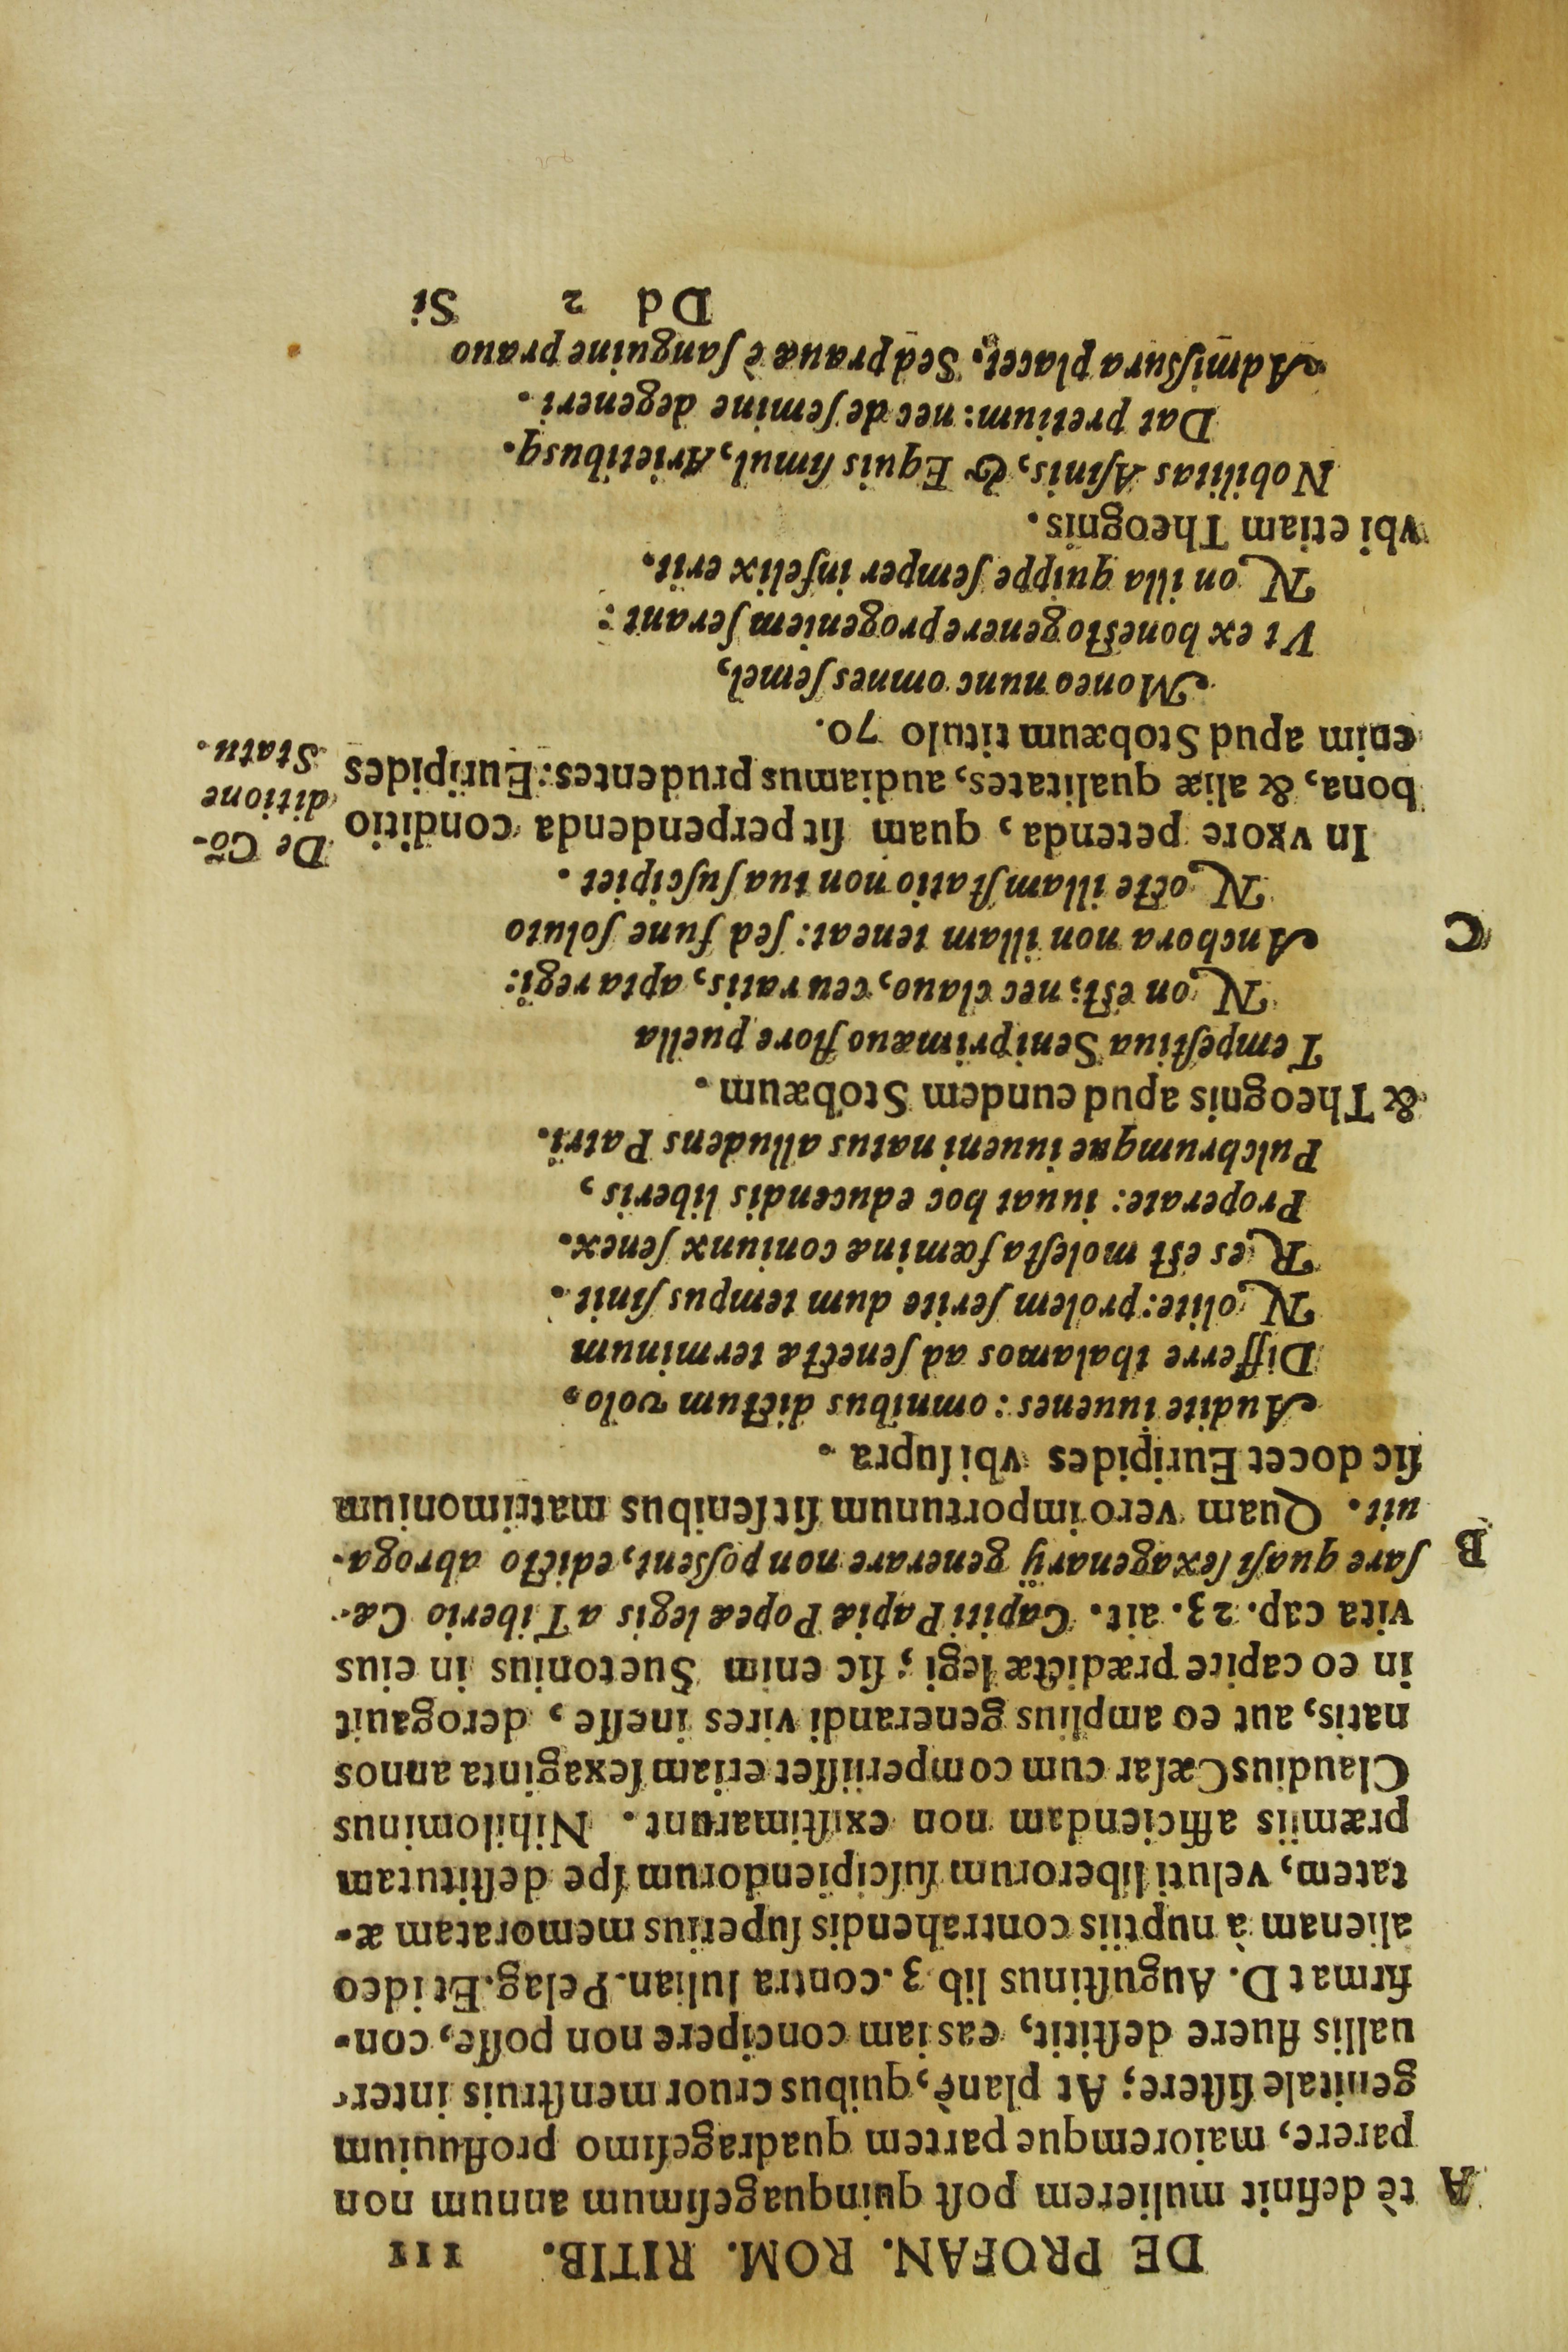 DE PROFAN. ROM. RITIB. 111
A tè definit mulierem poſt quinquageſimum annum non
parere, maioremque partem quadrageſimo profluuium
genitale ſiſtere; At planè, quibus cruor menſtruis inter-
uallis fluere deſtitit, eas iam concipere non poſſe, con-
firmat D. Auguſtinus lib 3. contra Iulian. Pelag. Et ideo
alienam à nuptiis contrahendis ſuperius memoratam æ-
tatem, veluti liberorum ſuſcipiendorum ſpe deſtitutam
præmiis afficiendam non exiſtimarunt. Nihilominus
Claudius Cæſar cum comperiiſſet etiam ſexaginta annos
natis, aut eo amplius generandi vires ineſſe, derogauit
in eo capite prædictæ legi; ſic enim Suetonius in eius
vita cap. 23. ait. Capiti Papiæ Popeæ legis a Tiberio Cæ-
B ſare quaſi ſexagenarij generare non poſſent, edicto abroga-
uit. Quam vero importunum ſit ſenibus matrimonium
ſic docet Euripides vbi ſupra.
Audite iuuenes: omnibus dictum volo,
Differre thalamos ad ſenectæ terminum
Nolite: prolem ſerite dum tempus ſinit.
Res eſt moleſta fœminæ coniunx ſenex.
Properate: iuuat hoc educendis liberis,
Pulchrumque iuueni natus alludens Patri.
& Theognis apud eundem Stobæum.
Tempeſtiua Seni primæuo flore puella
Non eſt; nec clauo, ceu ratis, apta regi:
C Anchora non illam teneat: ſed fune ſoluto
Nocte illam ſtatio non tua ſuſcipiet.
In vxore petenda, quam ſit perpendenda conditio
bona, & aliæ qualitates, audiamus prudentes: Euripides
enim apud Stobæum titulo 70.
De Cõ-
ditione
Statu.
Moneo nunc omnes ſemel,
Vt ex honeſto genere progeniem ſerant:
Non illa quippe ſemper infelix erit.
vbi etiam Theognis.
Nobilitas Aſinis, & Equis ſimul, Arietibusq.
Dat pretium: nec de ſemine degeneri.
Admiſſura placet. Sed prauæ è ſanguine prauo
Dd 2 Si